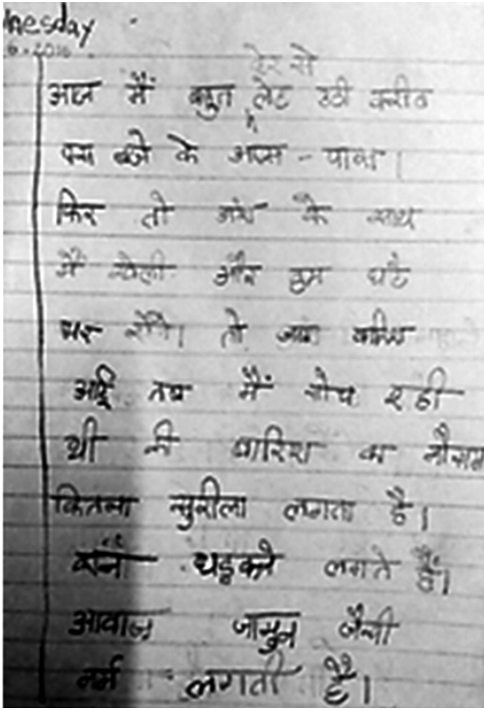 nesday
6.2016
देर से
आज मैं बहुत लेट उठी करीब
बजे के आस-पास।
फिर तो के साथ
मैं खेली और हम घंटे
भर तो जब
आई तब मैं सोच रही
थी की बारिश का मौसम
कितना सुरीला लगता है।
धड़कने लगते हैं।
आवाज जामुन जैसी
नर्म लगती है।